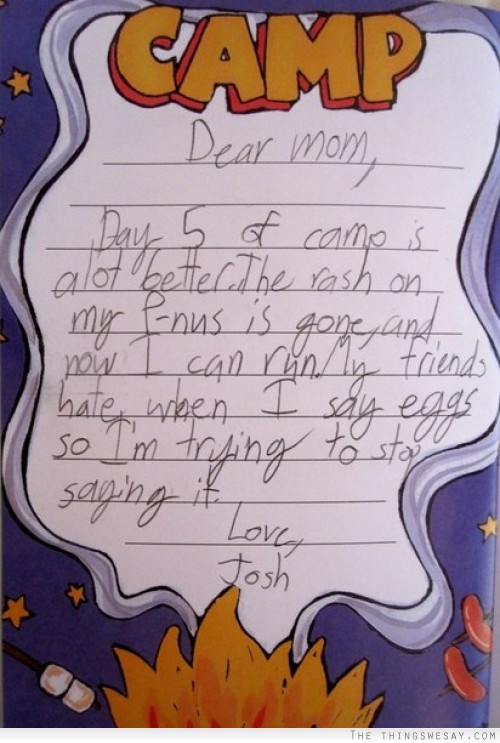 CAMP
Dear mom,
Day 5 of camp is
alot better. The rash on
my P-nus is gone, and
now I can run. My friends
hate when I say eggs
so I'm trying to stop
saying it.
Love,
Josh
THE THINGSWESAY.COM